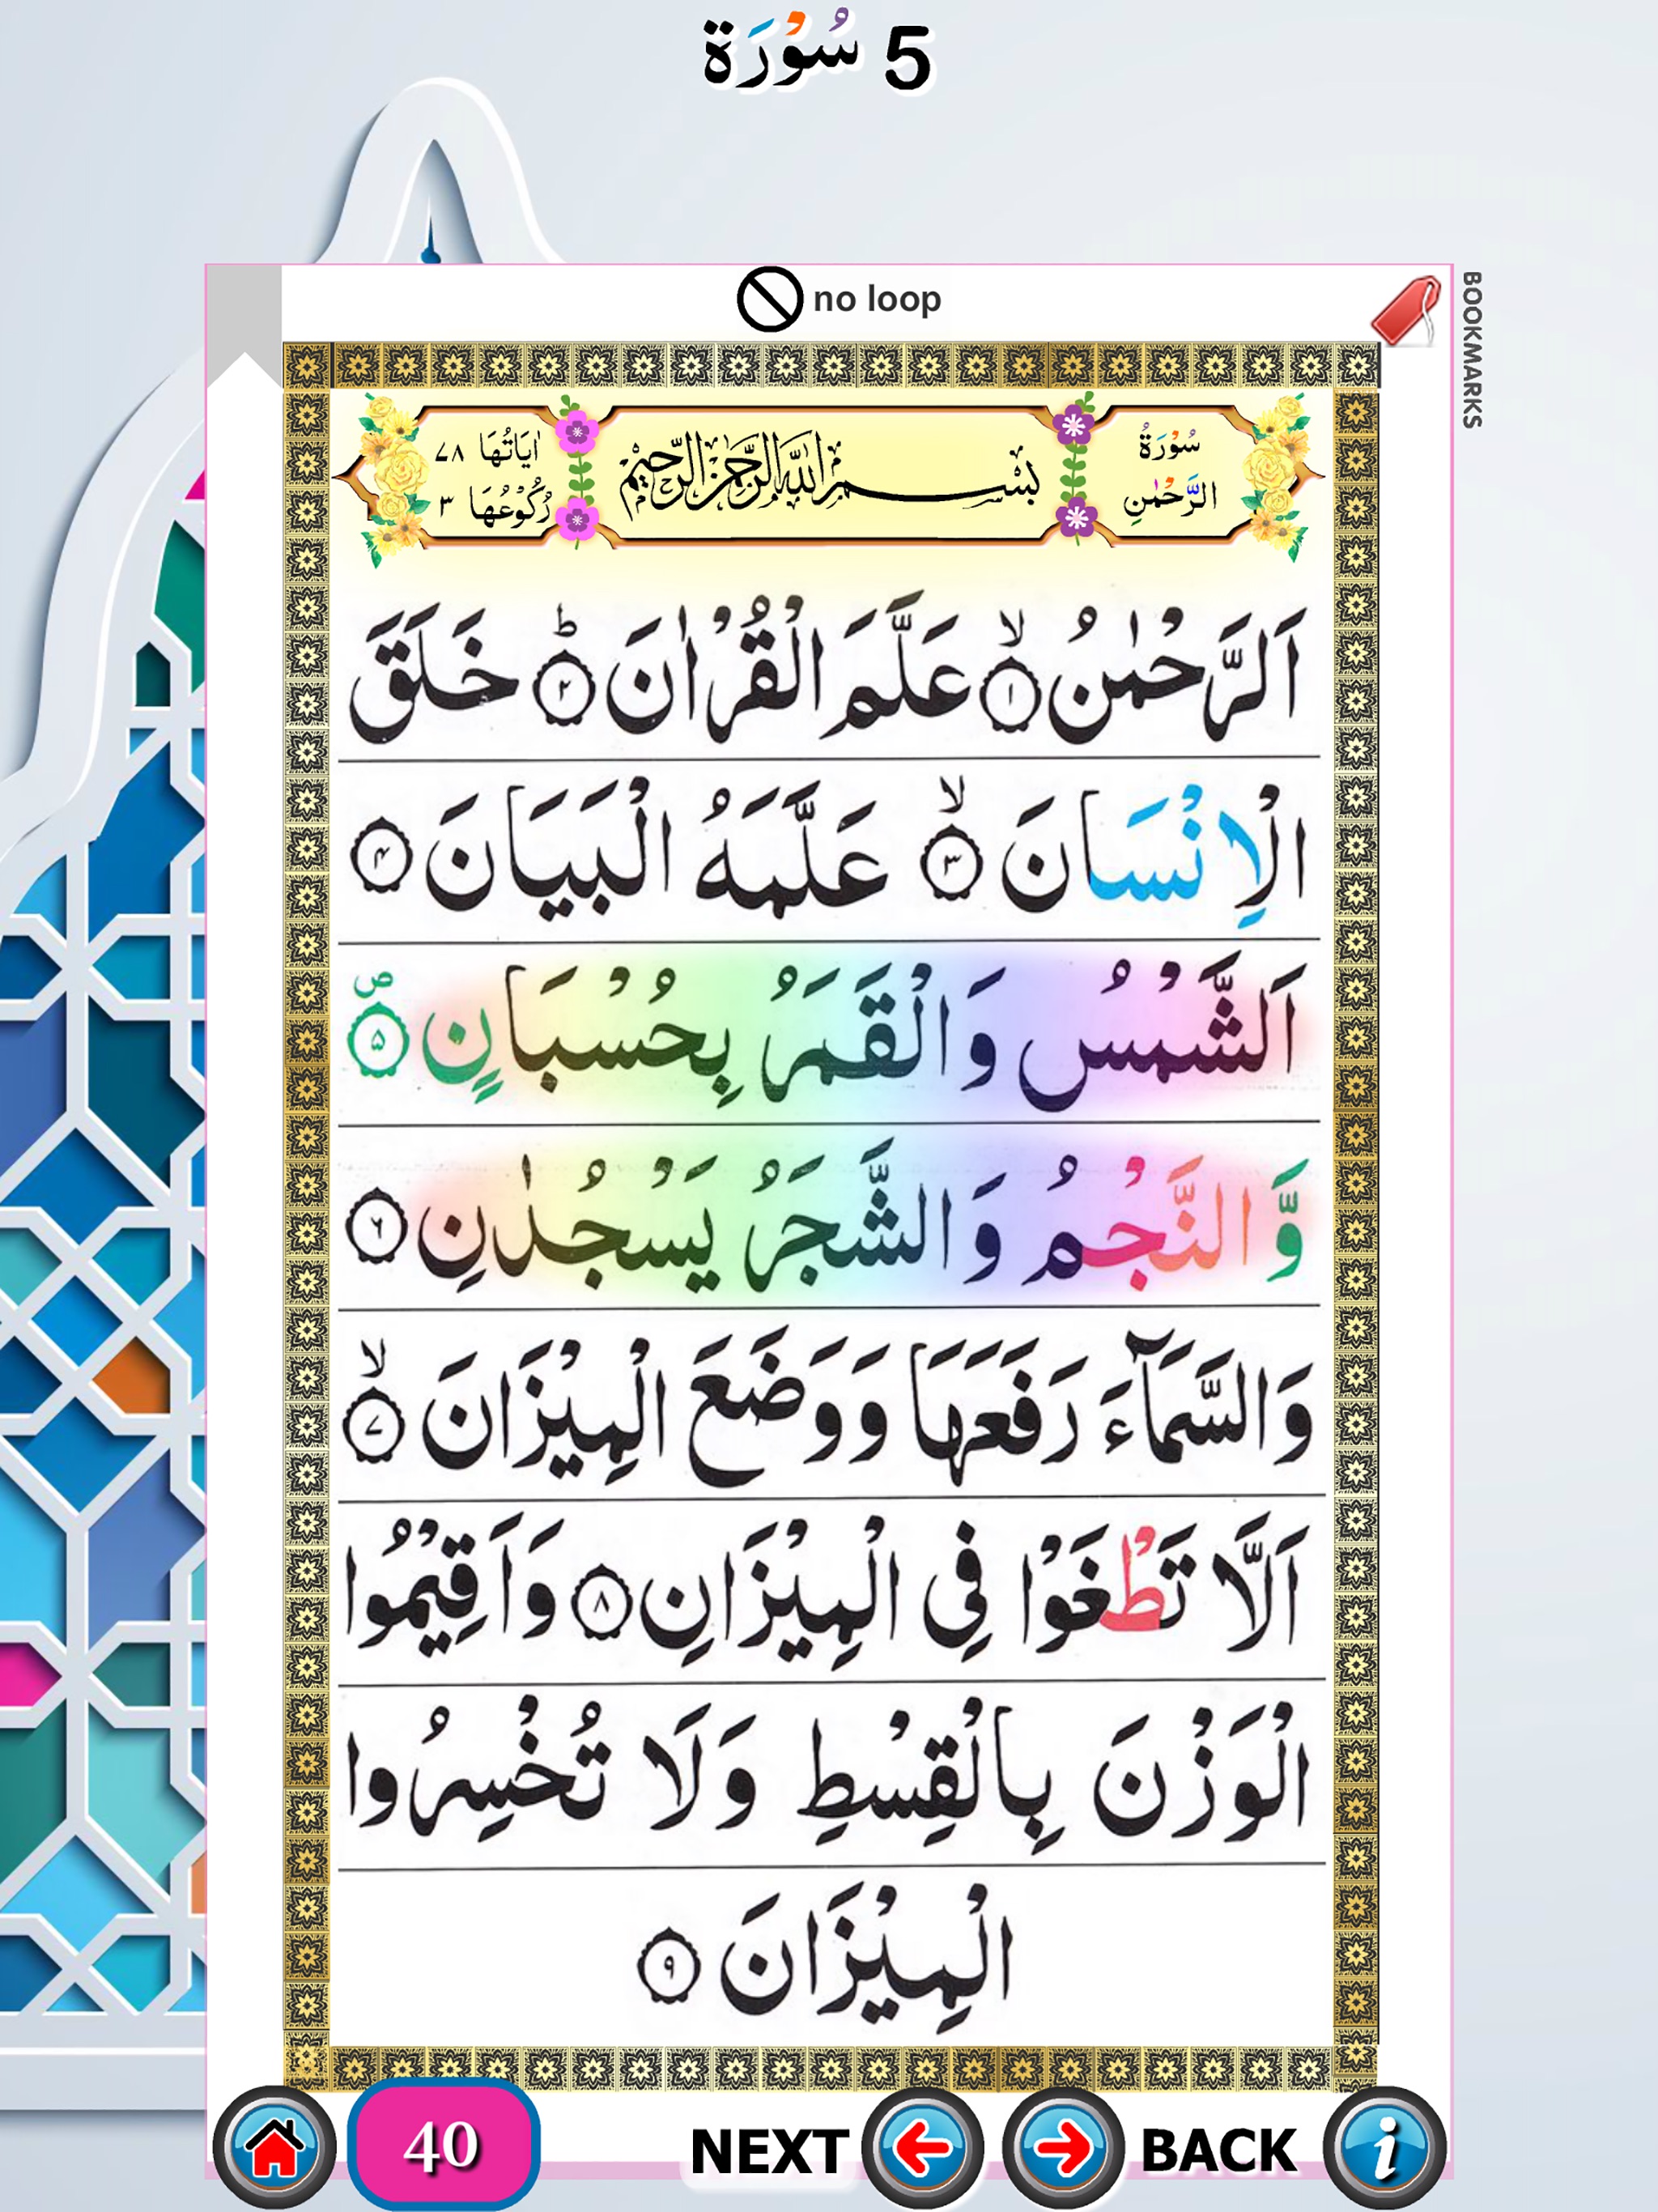 5 سُوْرَة
no loop
BOOKMARKS
سُوْرَةُ الرَّحْمٰنِ
بِسْمِ اللهِ الرَّحْمٰنِ الرَّحِيْمِ
اٰيَاتُهَا ٧٨
رُكُوْعُهَا ٣
اَلرَّحْمٰنُ ۙ﴿۱﴾ عَلَّمَ الْقُرْاٰنَ ؕ﴿۲﴾ خَلَقَ
الْاِنْسَانَ ۙ﴿۳﴾ عَلَّمَهُ الْبَيَانَ ﴿۴﴾
اَلشَّمْسُ وَالْقَمَرُ بِحُسْبَانٍ ۪﴿۵﴾
وَّالنَّجْمُ وَالشَّجَرُ يَسْجُدٰنِ ﴿۶﴾
وَالسَّمَآءَ رَفَعَهَا وَوَضَعَ الْمِيْزَانَ ۙ﴿۷﴾
اَلَّا تَطْغَوْا فِى الْمِيْزَانِ ﴿۸﴾ وَاَقِيْمُوا
الْوَزْنَ بِالْقِسْطِ وَلَا تُخْسِرُوا
الْمِيْزَانَ ﴿۹﴾
40 NEXT BACK i